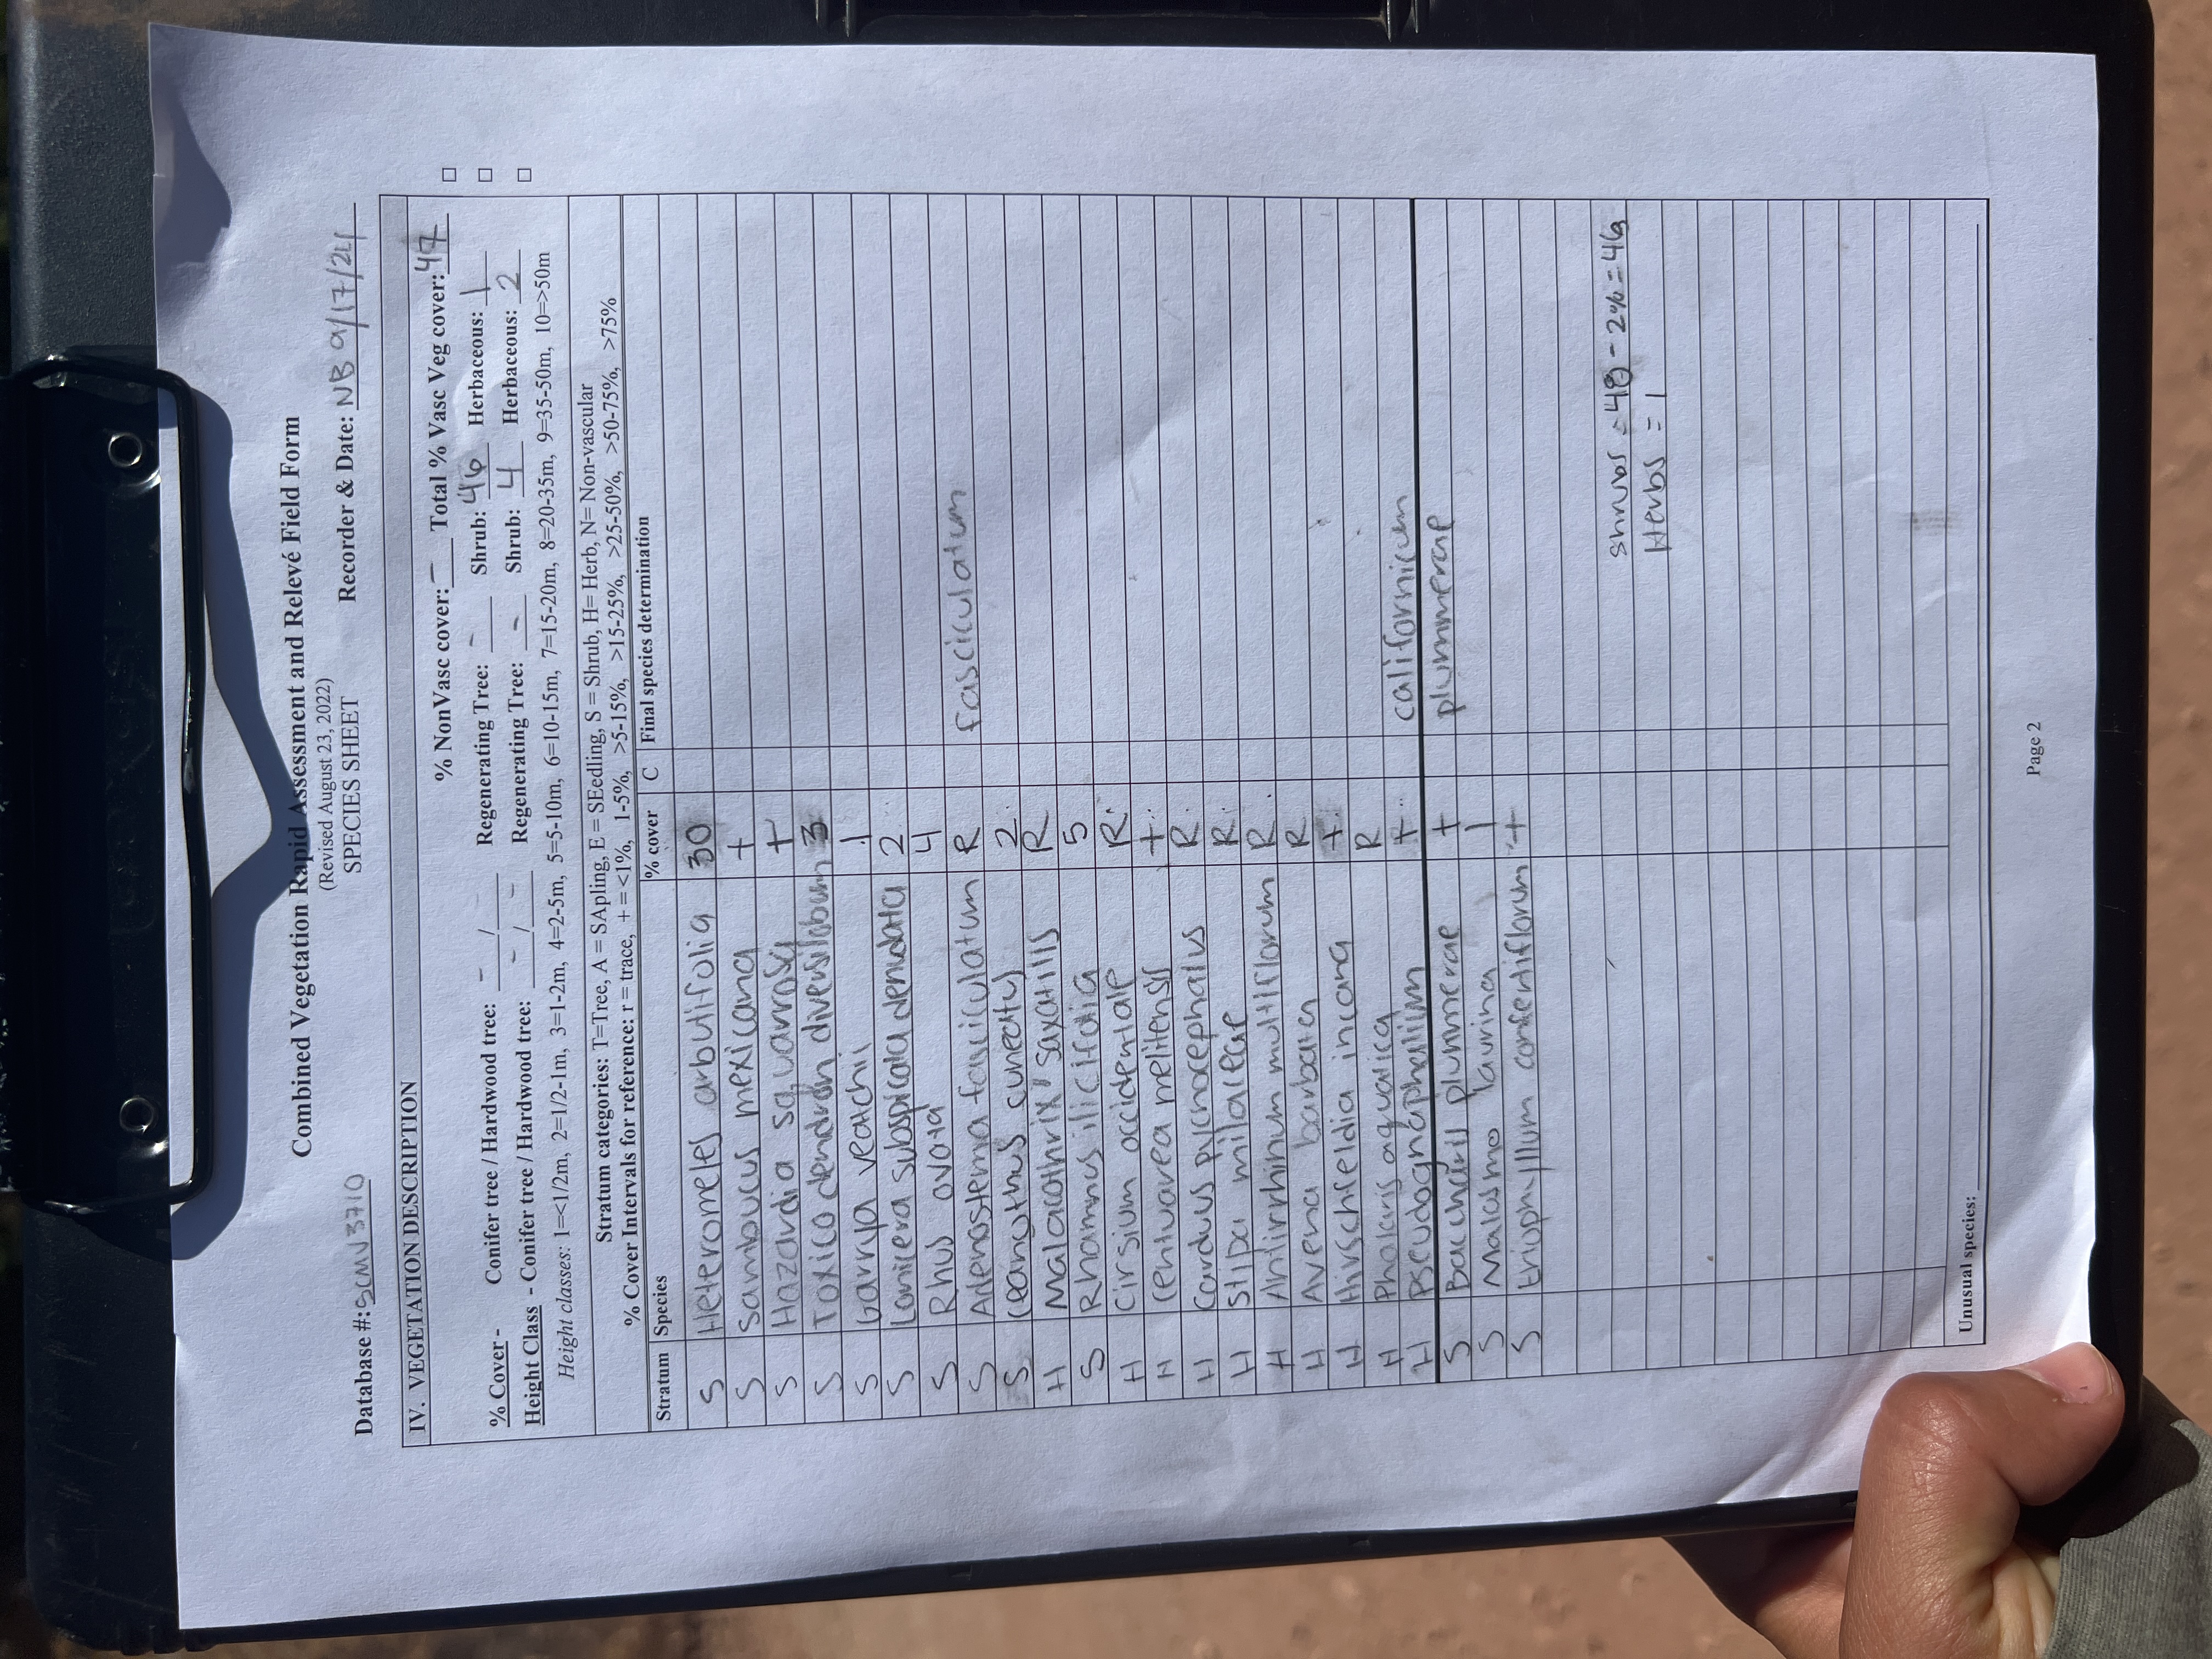 Combined Vegetation Rapid Assessment and Relevé Field Form
(Revised August 23, 2022)
SPECIES SHEET
Database #: SCMV3710 Recorder & Date: NB 9/17/24
IV. VEGETATION DESCRIPTION
% NonVasc cover: - Total % Vasc Veg cover: 47 □
% Cover - Conifer tree / Hardwood tree: - / - Regenerating Tree: - Shrub: 46 Herbaceous: 1 □
Height Class - Conifer tree / Hardwood tree: - / - Regenerating Tree: - Shrub: 4 Herbaceous: 2 □
Height classes: 1=<1/2m, 2=1/2-1m, 3=1-2m, 4=2-5m, 5=5-10m, 6=10-15m, 7=15-20m, 8=20-35m, 9=35-50m, 10=>50m
Stratum categories: T=Tree, A = SApling, E = SEedling, S = Shrub, H= Herb, N= Non-vascular
% Cover Intervals for reference: r = trace, + = <1%, 1-5%, >5-15%, >15-25%, >25-50%, >50-75%, >75%
Stratum Species % cover C Final species determination
S Heteromeles arbutifolia 30
S Sambucus mexicana +
S Hazardia squarrosa +
S Toxicodendron diversilobum 3
S Garrya veatchi 1
S Lonicera subspicata denudata 2
S Rhus ovata 4
S Adenostema fasciculatum R fasciculatum
S Ceanothus cuneatus 2
H Malacothrix saxatilis R
S Rhamnus ilicifolia 5
H Cirsium occidentale R
H Centuarea melitensis +
H Carduus pycnocephalus R
H Stipa milaceae R
H Antirrhinum multiflorum R
H Avena barbata R
H Hirschfeldia incana +
H Phalaris aquatica R
H Pseudognaphalium + californicum
S Baccharis plummerae + plummerae
S Malosma laurina 1
S Eriophyllum confertiflorum +
Shrubs = 48 - 2% = 46
Herbs = 1
Unusual species:
Page 2